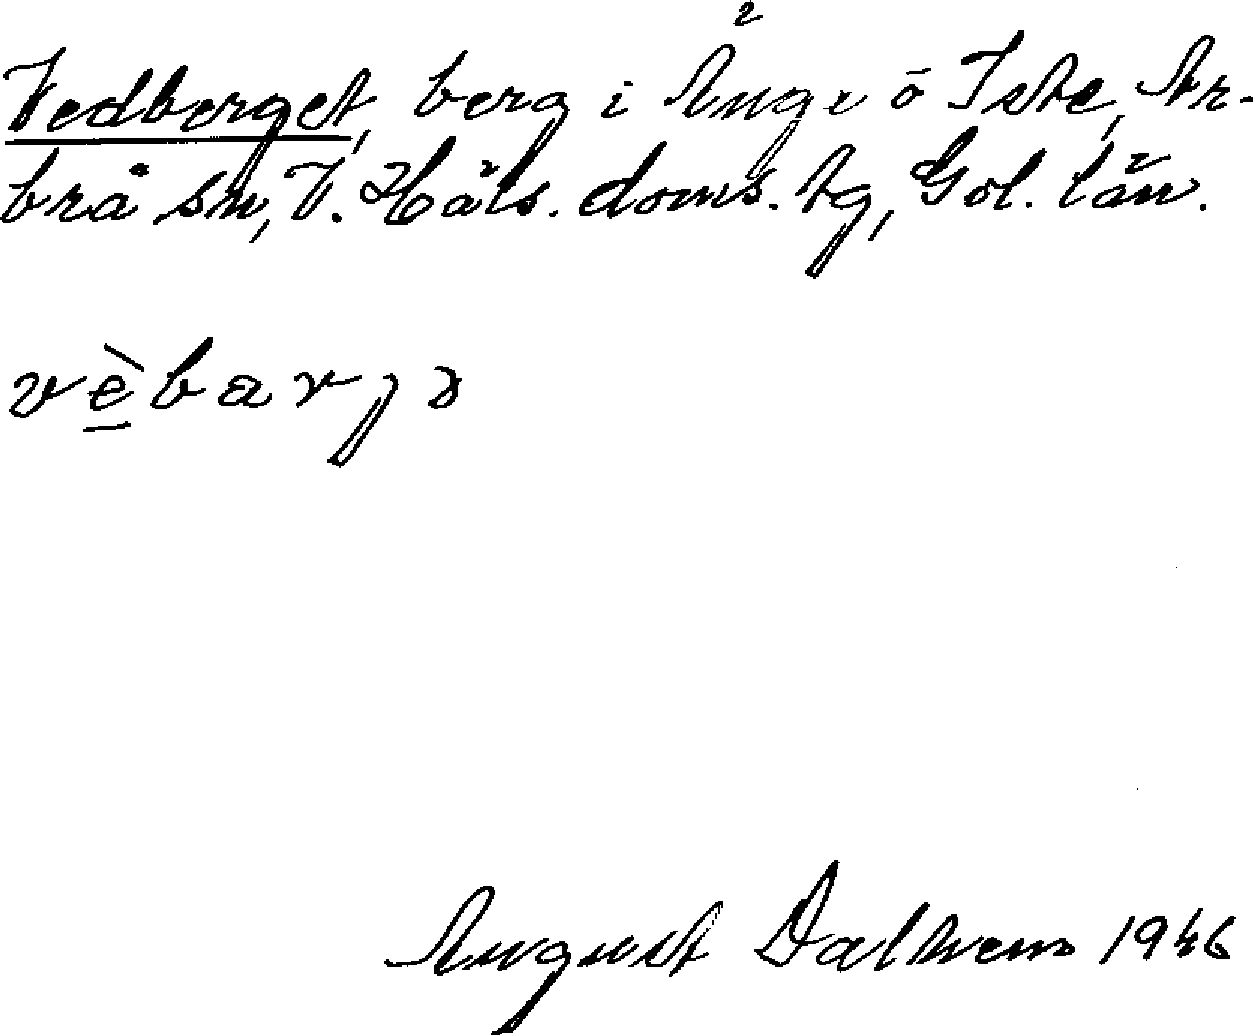 Vedberget, berg i Änge ö Iste, Ar-
brå sn, V. Häls. doms. tg, Gvl. län.
vèbarjə
August Dalhem 1946